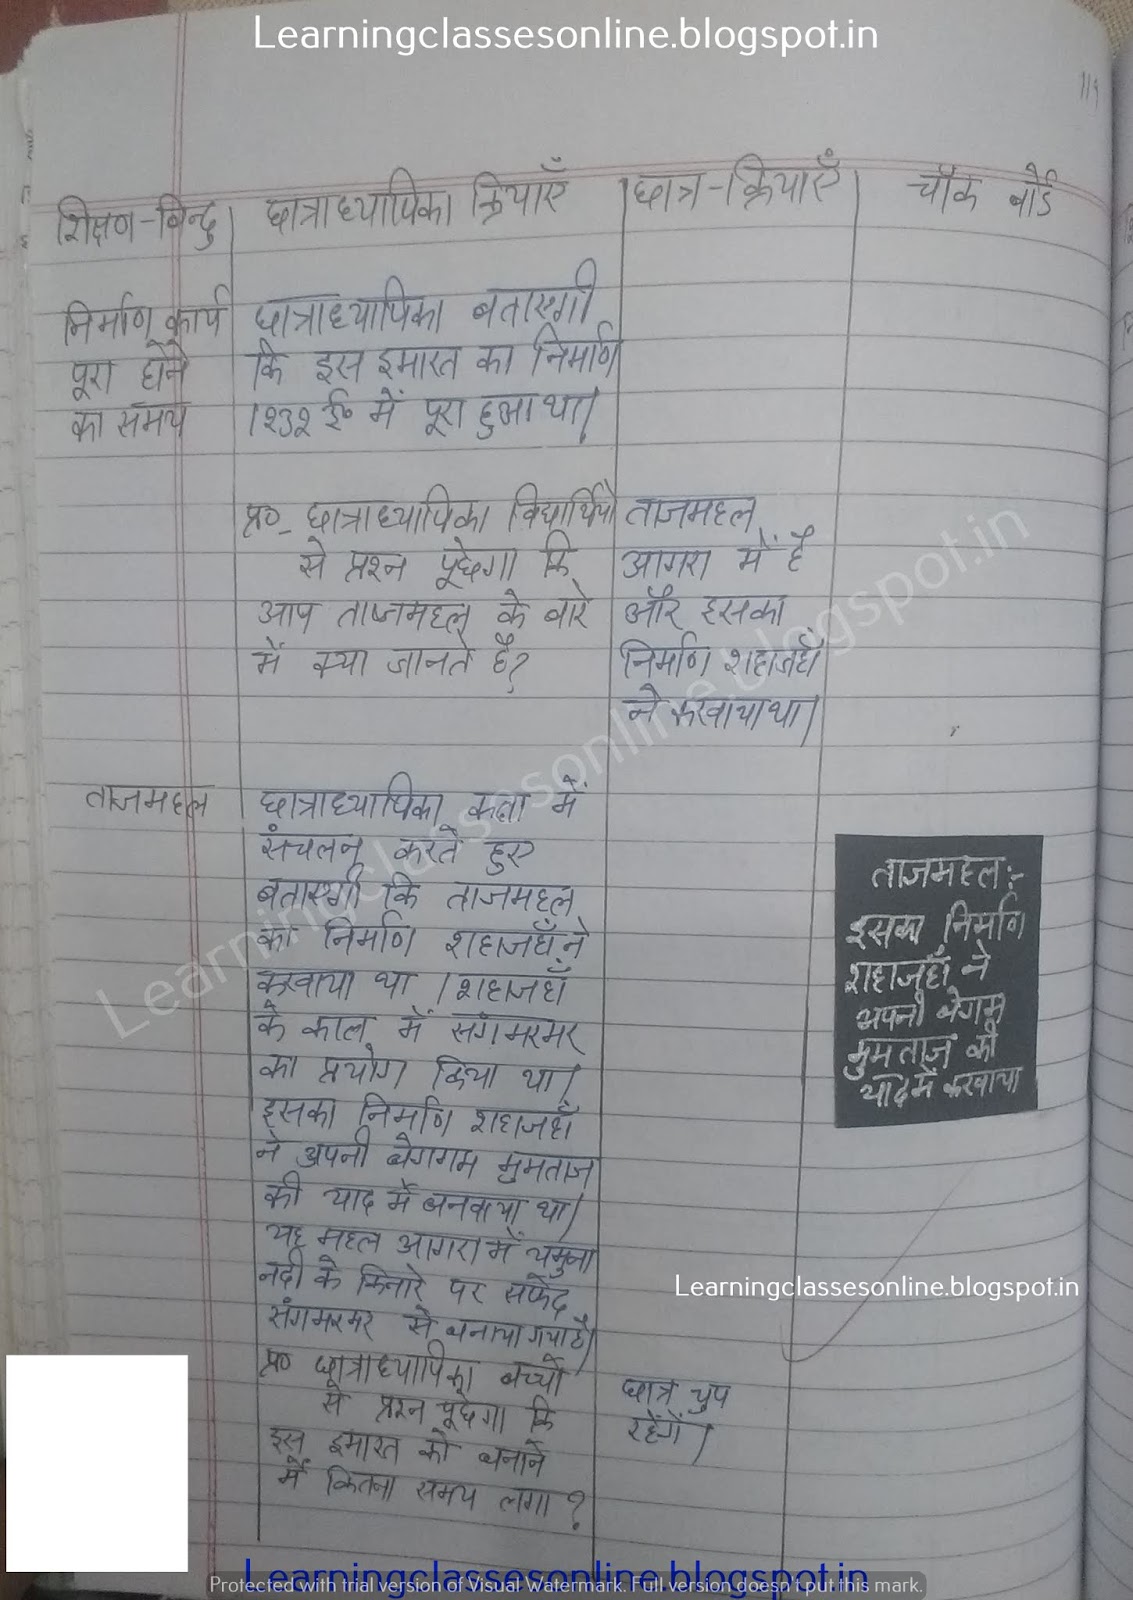 Learningclassesonline.blogspot.in
119
शिक्षण-बिन्दु
छात्राध्यापिका क्रियाएँ
छात्र-क्रियाएँ
चॉक बोर्ड
निर्माण कार्य
पूरा होने
का समय
छात्राध्यापिका बताएगी
कि इस इमारत का निर्माण
१२३२ ई० में पूरा हुआ था।
प्र०- छात्राध्यापिका विद्यार्थियों
से प्रश्न पूछेगा कि
आप ताजमहल के बारे
में क्या जानते है?
ताजमहल
आगरा में है
और इसका
निर्माण शहाजहाँ
ने करवाया था।
ताजमहल
छात्राध्यापिका कक्षा में
संचलन करते हुए
बताएगी कि ताजमहल
का निर्माण शहाजहाँ ने
करवाया था । शहाजहाँ
के काल में संगमरमर
का प्रयोग किया था।
इसका निर्माण शहाजहाँ
ने अपनी बेगगम मुमताज
की याद में बनवाया था।
यह महल आगरा में यमुना
नदी के किनारे पर सफेद
संगमरमर से बनाया गया है।
प्र० छात्राध्यापिका बच्चों
से प्रश्न पूछेगा कि
इस इमारत को बनाने
में कितना समय लगा ?
छात्र चुप
रहेंगें।
ताजमहल:-
इसका निर्माण
शहाजहाँ ने
अपनी बेगम
मुमताज की
याद में करवाया
Learningclassesonline.blogspot.in
Learningclassesonline.blogspot.in
Learningclassesonline.blogspot.in
Protected with trial version of Visual Watermark. Full version doesn't put this mark.